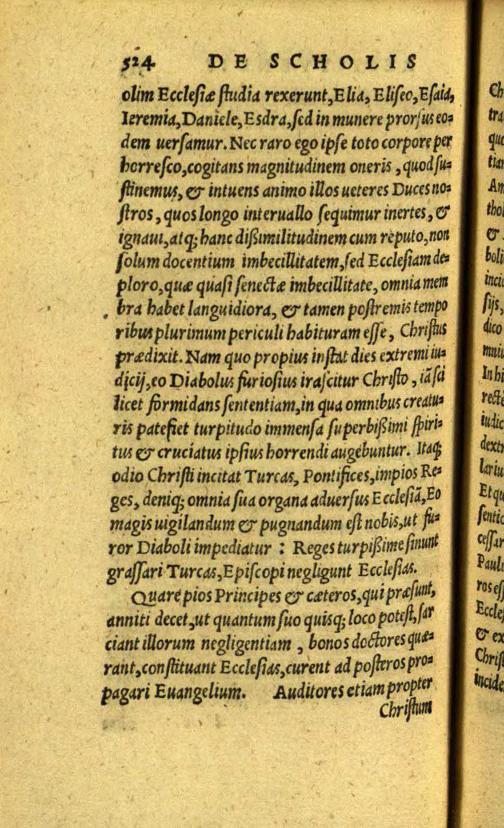 524 DE SCHOLIS
olim Ecclesiæ studia rexerunt, Elia, Eliseo, Esaia,
Ieremia, Daniele, Esdra, sed in munere prorsus eo=
dem uersamur. Nec raro ego ipse toto corpore per
horresco, cogitans magnitudinem oneris, quod su=
stinemus, & intuens animo illos ueteres Duces no=
stros, quos longo interuallo sequimur inertes, &
ignaui, atq; hanc dißimilitudinem cum reputo, non
solum docentium imbecillitatem, sed Ecclesiam de=
ploro, quæ quasi senectæ imbecillitate, omnia mem
bra habet languidiora, & tamen postremis tempo
ribus plurimum periculi habituram esse, Christus
prædixit. Nam quo propius instat dies extremi iu=
dicij, eo Diabolus furiosius irascitur Christo, iã sci
licet formidans sententiam, in qua omnibus creatu=
ris patefiet turpitudo immensa superbißimi spiri=
tus & cruciatus ipsius horrendi augebuntur. Itaq;
odio Christi incitat Turcas, Pontifices, impios Re=
ges, deniq; omnia sua organa aduersus Ecclesiã, Eo
magis uigilandum & pugnandum est nobis, ut fu=
ror Diaboli impediatur : Reges turpißime sinunt
grassari Turcas, Episcopi negligunt Ecclesias.
Quare pios Principes & cæteros, qui præsunt,
anniti decet, ut quantum suo quisq; loco potest, sar
ciant illorum negligentiam, bonos doctores quæ=
rant, constituant Ecclesias, curent ad posteros pro=
pagari Euangelium. Auditores etiam propter
Christum